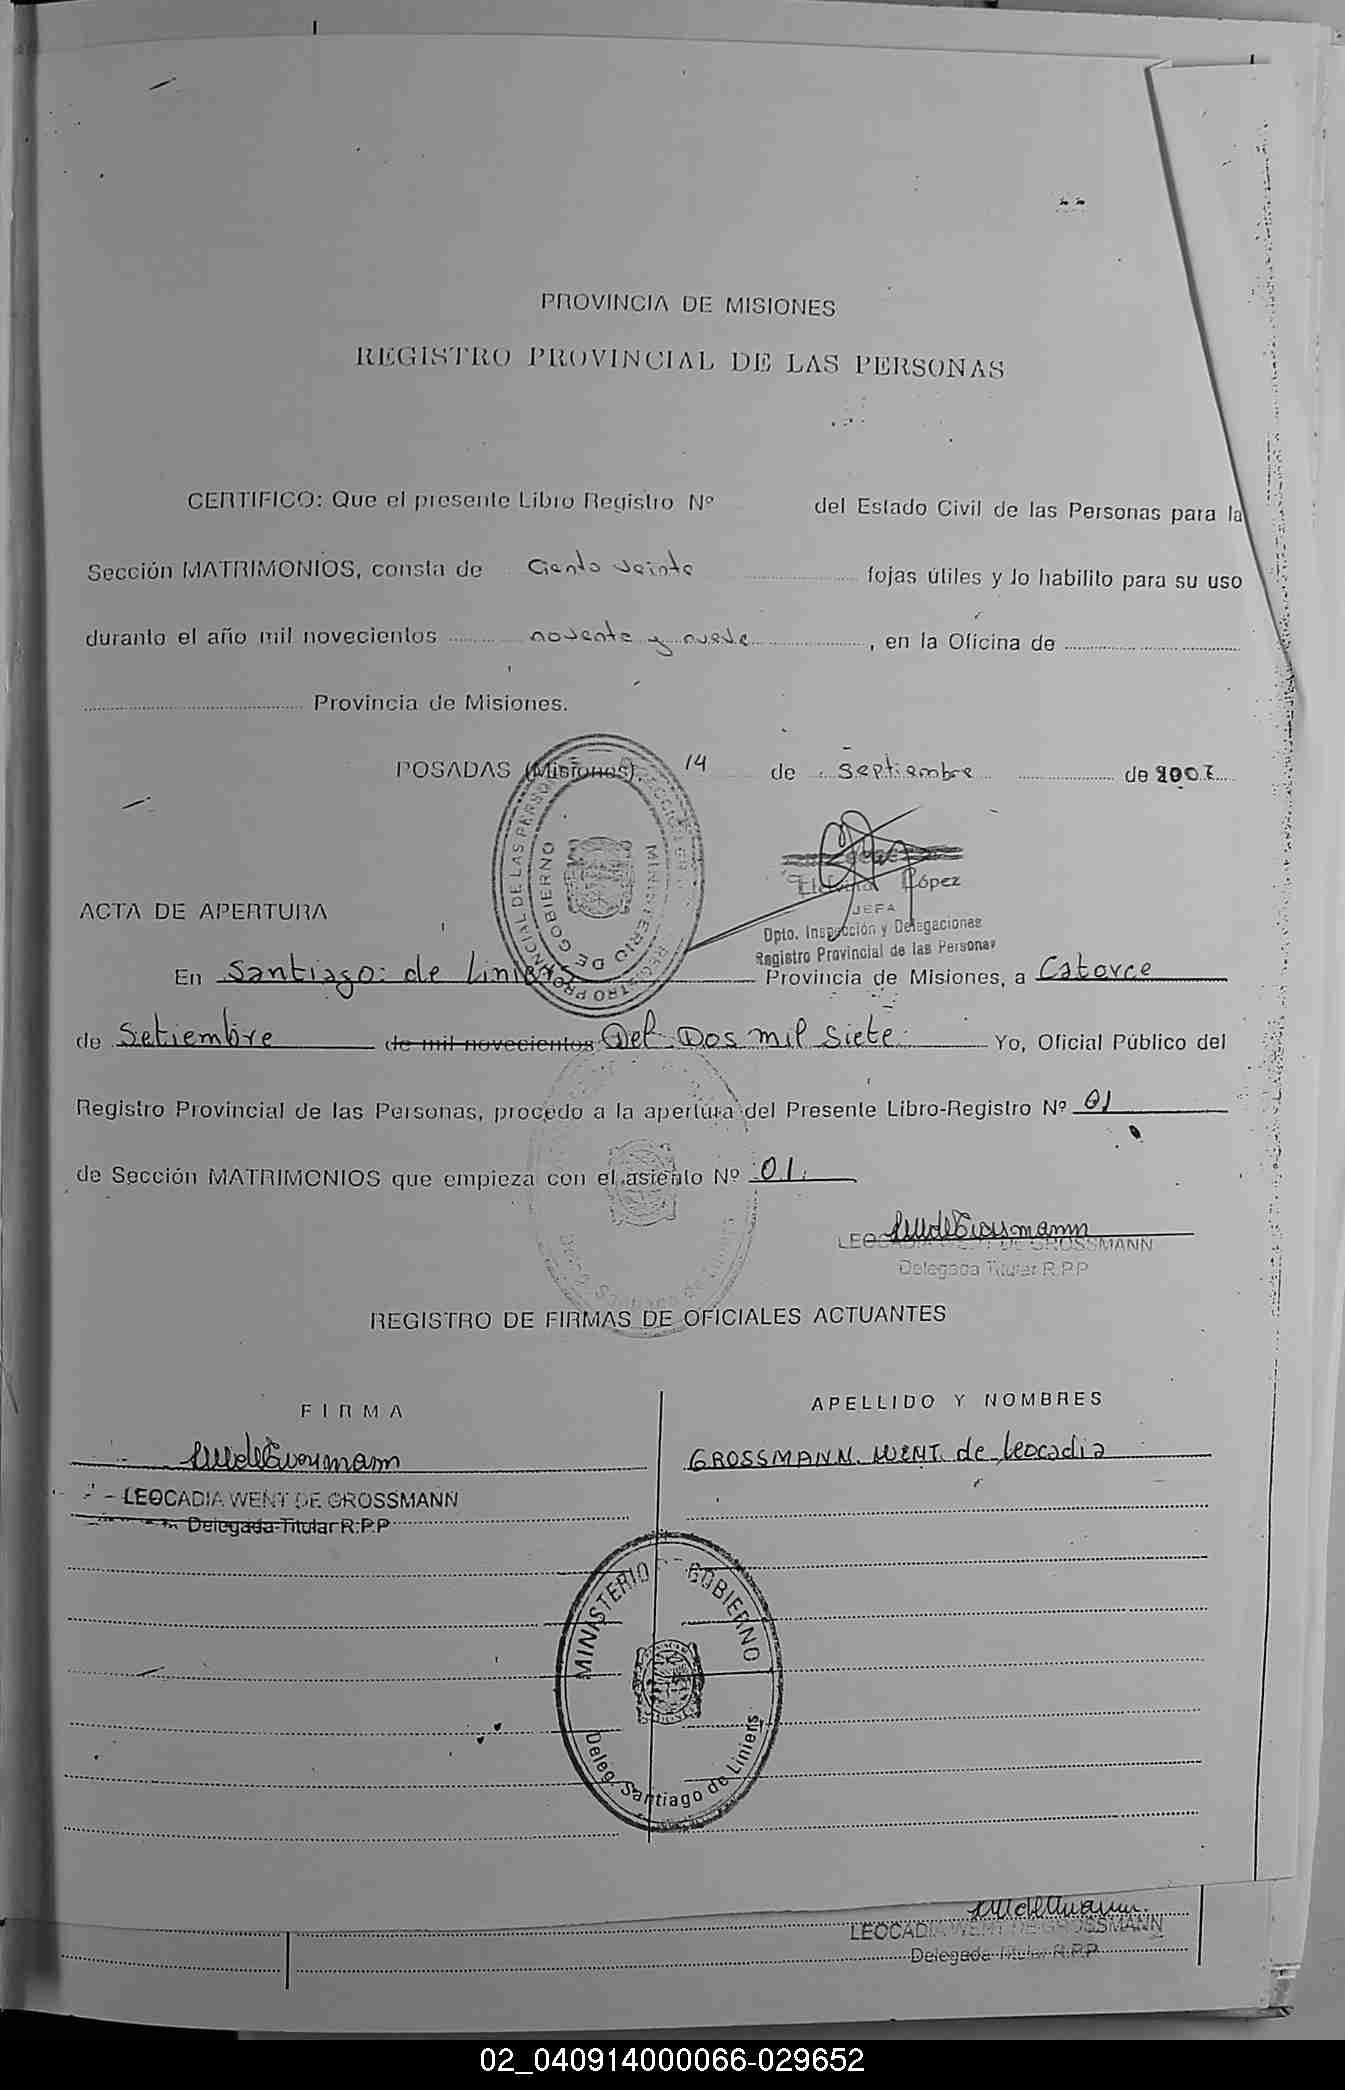 PROVINCIA DE MISIONES
REGISTRO PROVINCIAL DE LAS PERSONAS
CERTIFICO: Que el presente Libro Registro Nº del Estado Civil de las Personas para la
Sección MATRIMONIOS, consta de Ciento veinte fojas útiles y lo habilito para su uso
durante el año mil novecientos noventa y nueve, en la Oficina de
Provincia de Misiones.
POSADAS (Misiones), 14 de septiembre de 2007
López
JEFA
Dpto. Inspección y Delegaciones
Registro Provincial de las Personas
REGISTRO PROVINCIAL DE LAS PERSONAS
MINISTERIO DE GOBIERNO
ACTA DE APERTURA
En Santiago de Liniers Provincia de Misiones, a Catorce
de Setiembre de mil novecientos Del Dos mil siete Yo, Oficial Público del
Registro Provincial de las Personas, procedo a la apertura del Presente Libro-Registro Nº 01
de Sección MATRIMONIOS que empieza con el asiento Nº 01.
LEOCADIA WENT DE GROSSMANN
Delegada Titular R.P.P
Deleg. Santiago de Liniers
REGISTRO DE FIRMAS DE OFICIALES ACTUANTES
FIRMA APELLIDO Y NOMBRES
GROSSMANN. WENT. de Leocadia
LEOCADIA WENT DE GROSSMANN
Delegada Titular R.P.P
MINISTERIO GOBIERNO
Deleg. Santiago de Liniers
LEOCADIA WENT DE GROSSMANN
Delegada Titular R.P.P.
02_040914000066-029652